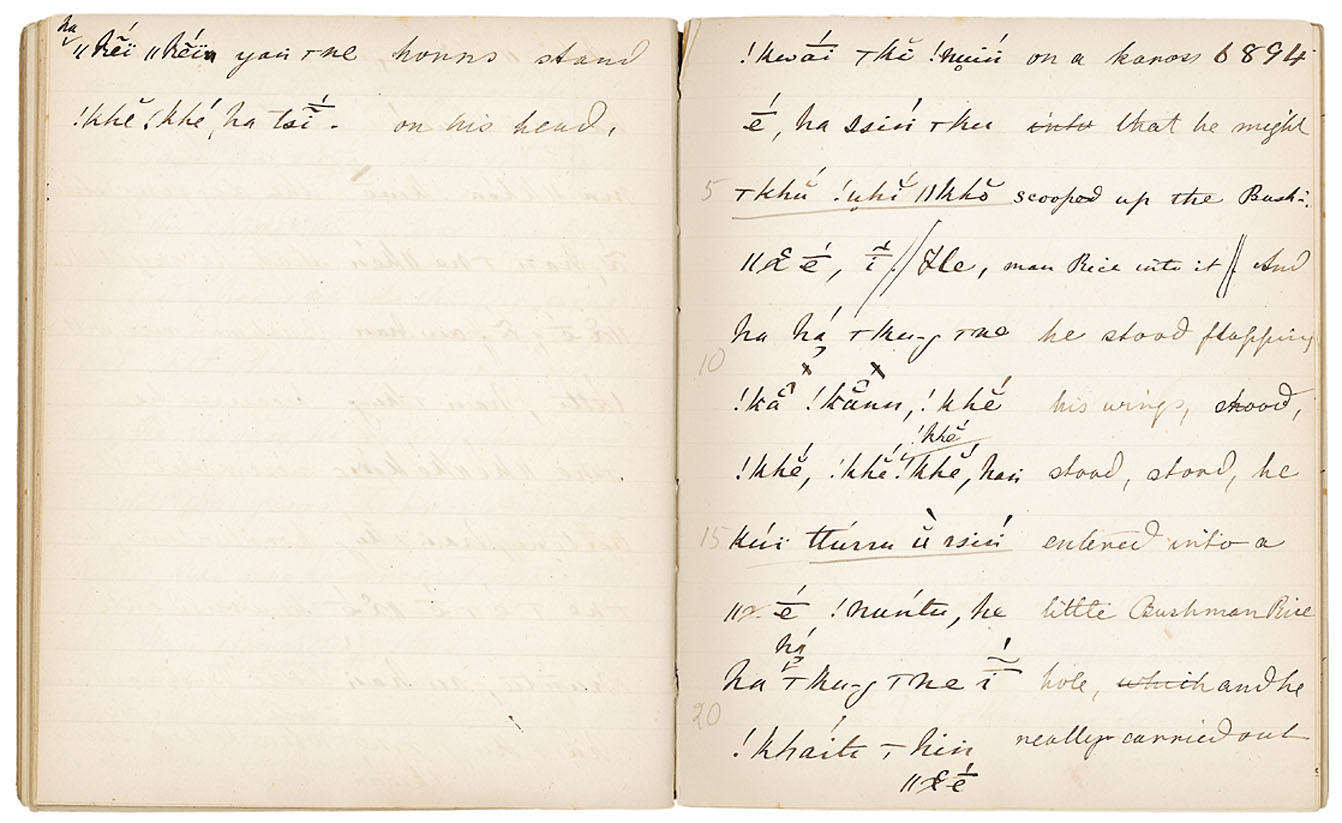 ha
ǁkĕï ǁkéïn yau ꞇne horns stand
!khĕ !khé, ha tsĩ. on his head,
!kwãi ꞇki on a kaross 6894
é, ha ssiń ꞇku into that he might
5 ꞇkhŭ !uhĭ ǁkhŏ scooped up the Bush-
He, man Rice into it. And
ha há ꞇku-g ꞇne he stood flapping
10
!kãnn, !khé his wings, stood,
!khé
!khĕ, !khĕ !khĕ, han stood, stood, he
15 kúï ttúrru ù ssiń entered into a
ǁχé !nuńtu, he little Bushman Rice
há
ha ꞇku-g ꞇne ĩ hole, which and he
20
!khaitu ꞇhin really carried out
ǁχé